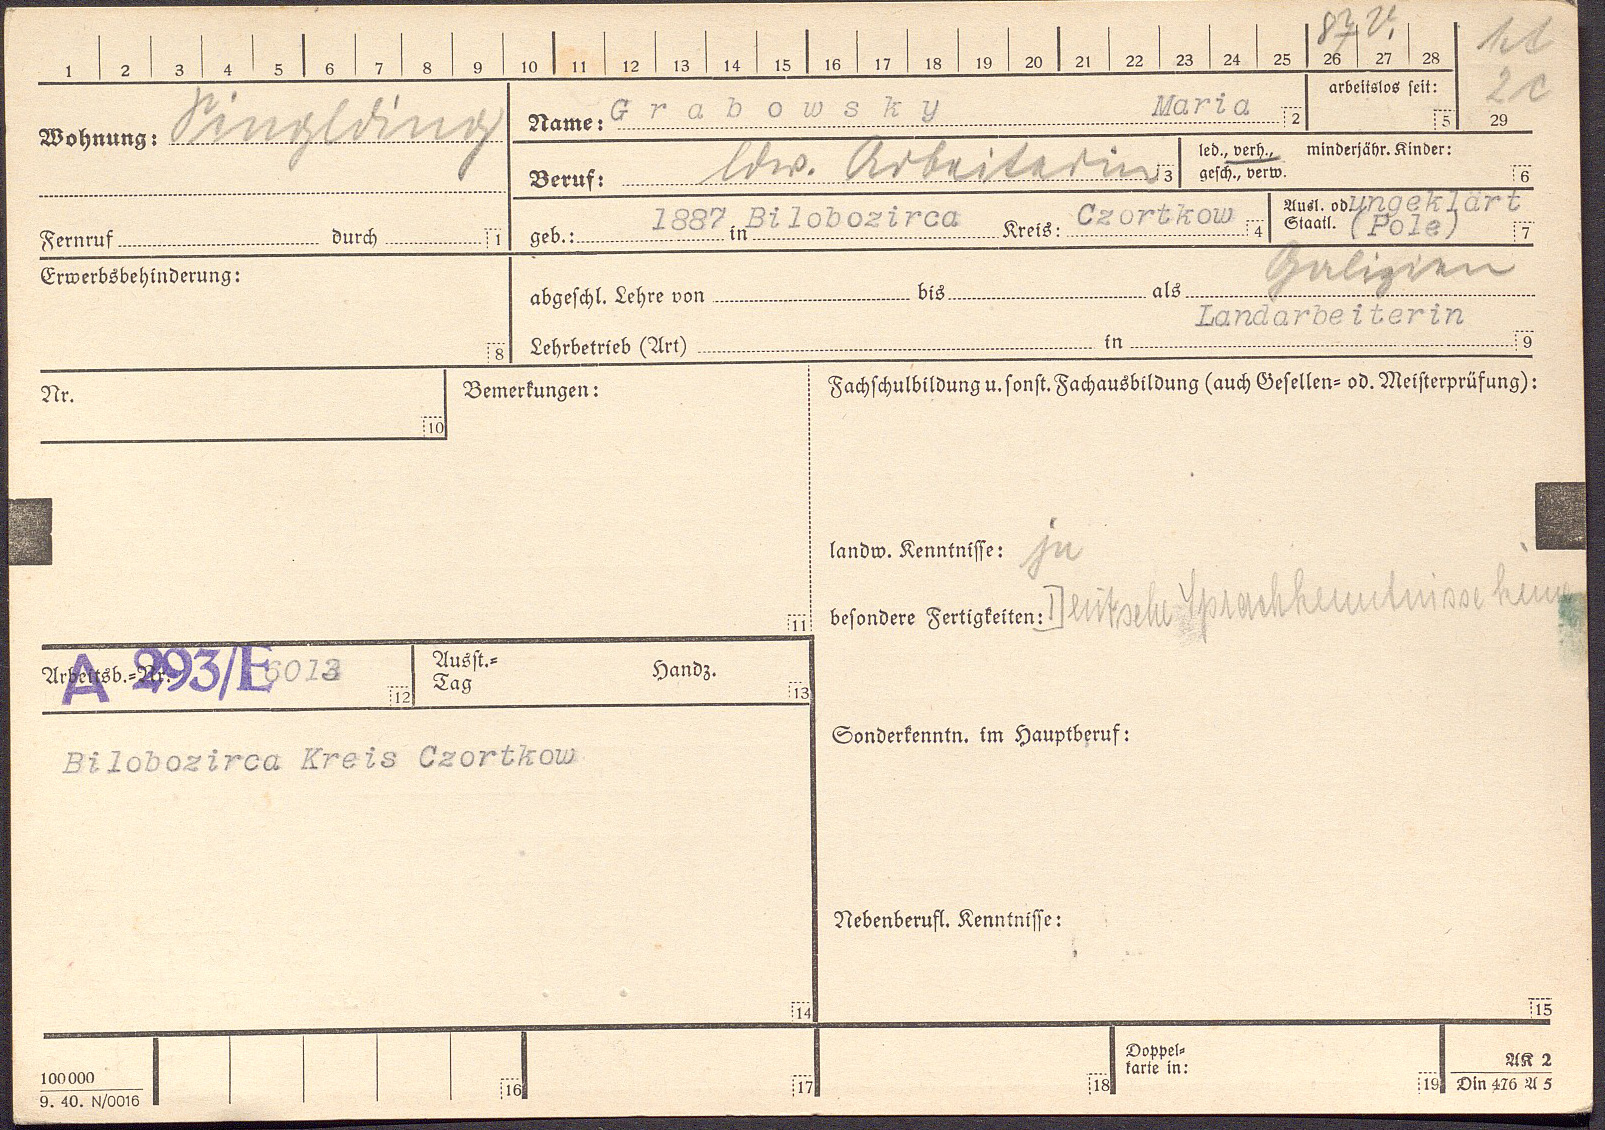 1 2 3 4 5 6 7 8 9 10 11 12 13 14 15 16 17 18 19 20 21 22 23 24 25 26 27 28
87 V.
1 t
2 c
29
Wohnung: Singlding
Name: Grabowsky Maria 2
arbeitslos seit: 5
Beruf: ldw. Arbeiterin 3
led., verh., gesch., verw.
minderjähr. Kinder: 6
Fernruf durch 1
geb.: 1887 in Bilobozirca Kreis: Czortkow 4
Ausl. od. Staatl. ungeklärt (Pole) 7
Erwerbsbehinderung: 8
Galizien
abgeschl. Lehre von bis als
Landarbeiterin
Lehrbetrieb (Art) in 9
Nr. 10
Bemerkungen: 11
Fachschulbildung u. sonst. Fachausbildung (auch Gesellen= od. Meisterprüfung):
landw. Kenntnisse: ja
besondere Fertigkeiten: Deutsche Sprachkenntnisse
Arbeitsb.=Nr. A 293/E 6013 12
Ausst.= Tag Handz. 13
Bilobozirca Kreis Czortkow
14
Sonderkenntn. im Hauptberuf:
Nebenberufl. Kenntnisse:
15
100000
9. 40. N/0016
16 17 18
Doppel= karte in: 19
AK 2
Din 476 A 5